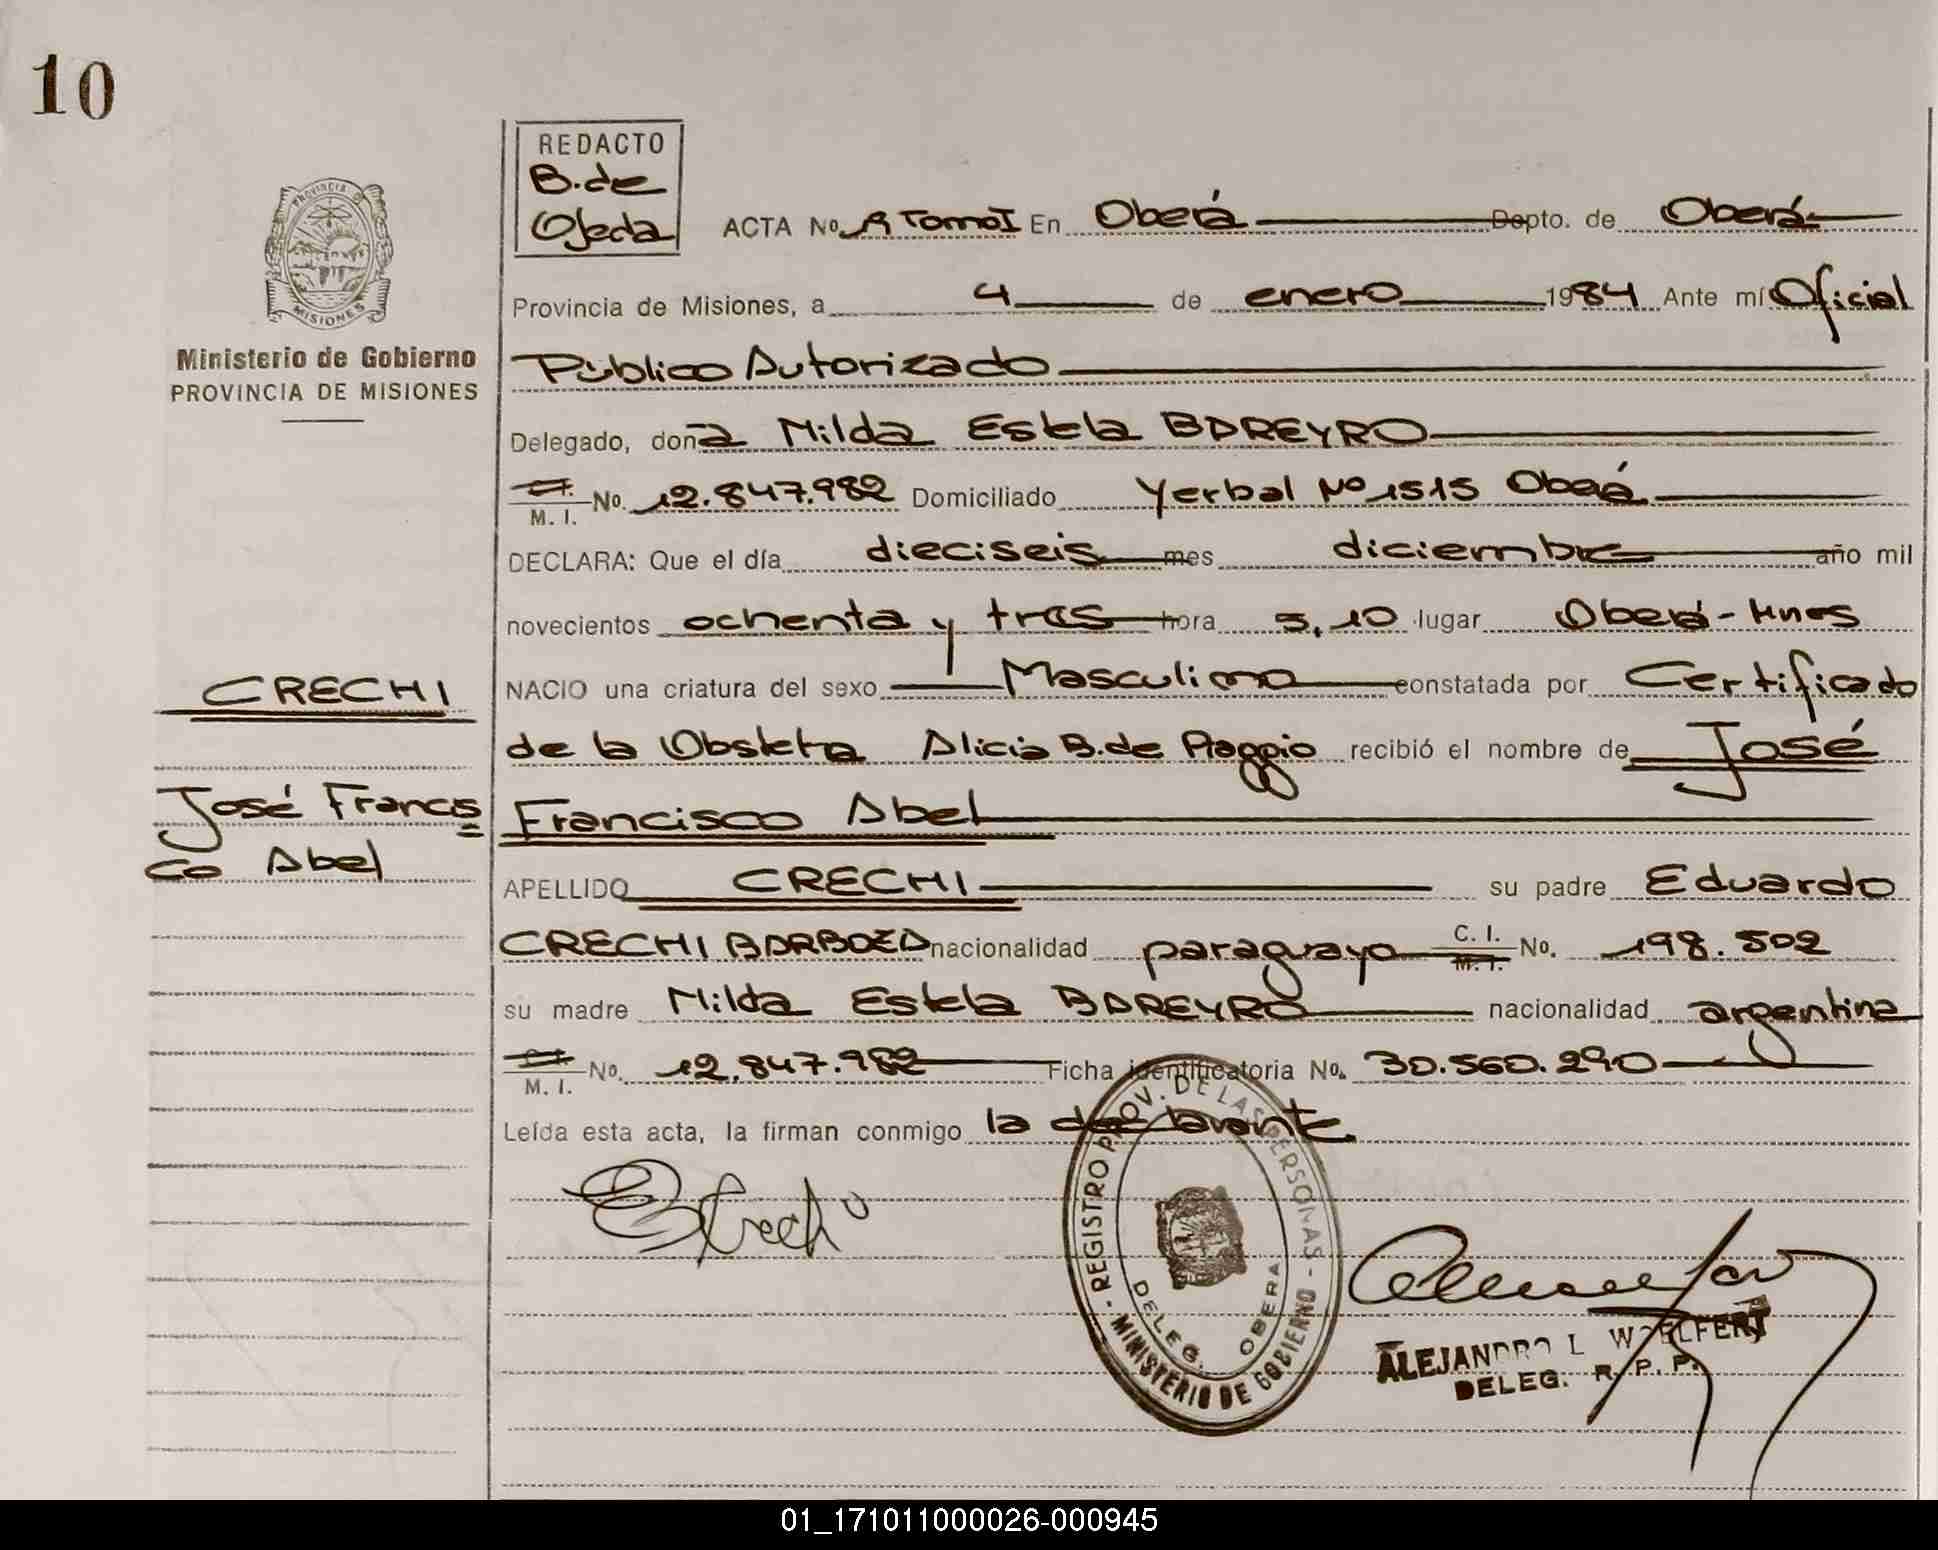 10
REDACTO
B. de
Ojeda
ACTA No. Tomo I En Oberá Depto. de Oberá
PROVINCIA DE
MISIONES
Provincia de Misiones, a 4 de enero 1984 Ante mí Oficial
Ministerio de Gobierno
PROVINCIA DE MISIONES
Público Autorizado
Delegado, doña Milda Estela BAREYRO
C.I. M. I. No. 12.847.982 Domiciliado Yerbal No 1515 Oberá
DECLARA: Que el día dieciseis mes diciembre año mil
novecientos ochenta y tres hora 5,10 lugar Oberá - Mnes
CRECHI
NACIO una criatura del sexo Masculino constatada por Certificado
de la Obstetra Alicia B. de Piaggio recibió el nombre de José
José Francis
co Abel
Francisco Abel
APELLIDO CRECHI su padre Eduardo
CRECHI BARBOZA nacionalidad paraguayo C. I. M. I. No. 198.502
su madre Milda Estela BAREYRO nacionalidad argentina
C.I. M. I. No. 12.847.982 Ficha identificatoria No. 30.560.290
Leída esta acta, la firman conmigo la declarante.
Crechi
- REGISTRO PROV. DE LAS PERSONAS - MINISTERIO DE GOBIERNO
DELEG. OBERA
ALEJANDRO L WOELFERT
DELEG. R. P. P.
01_171011000026-000945